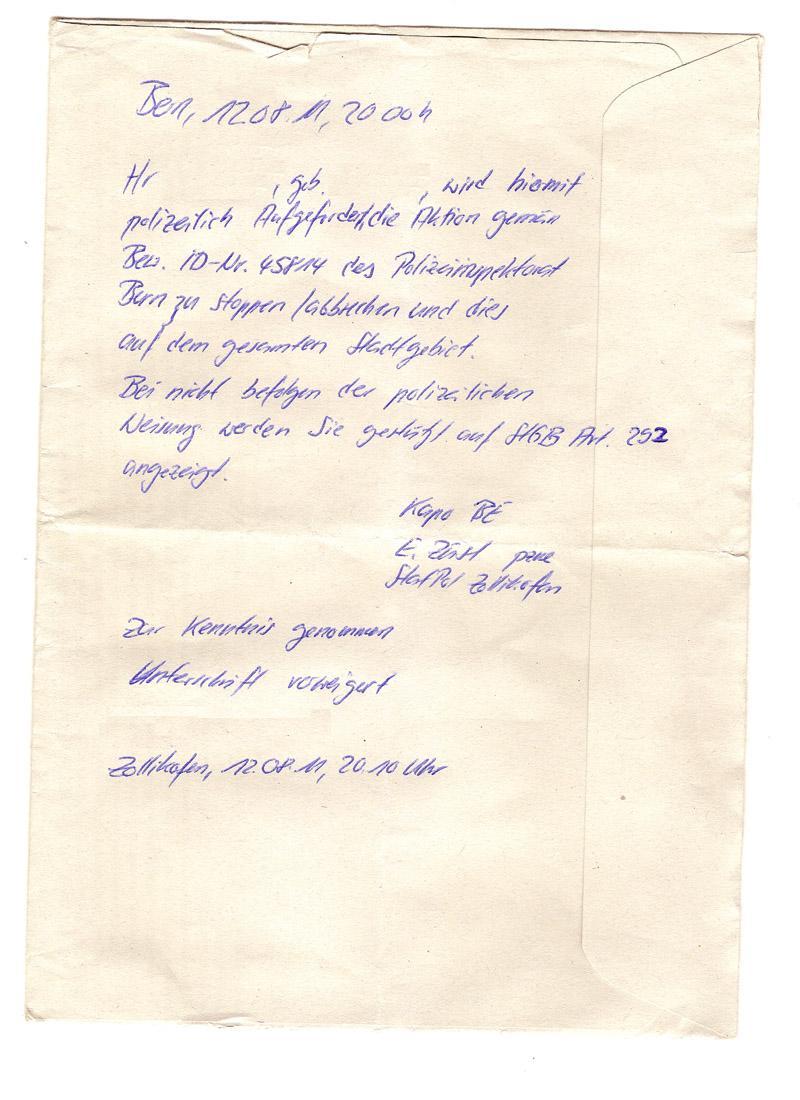 Bern, 12.08.11, 20 00 h
Hr , geb. , wird hiermit
polizeilich Aufgefordert, die Aktion gemäss
Bew. ID-Nr. 45814 des Polizeiinspektorat
Bern zu stoppen / abbrechen und dies
auf dem gesamten Stadtgebiet.
Bei nicht befolgen der polizeilichen
Weisung werden Sie gestützt auf StGB Art. 292
angezeigt.
Kapo BE
E.
StaPol Zollikofen
Zur Kenntnis genommen
Unterschrift verweigert
Zollikofen, 12.08.11, 20.10 Uhr